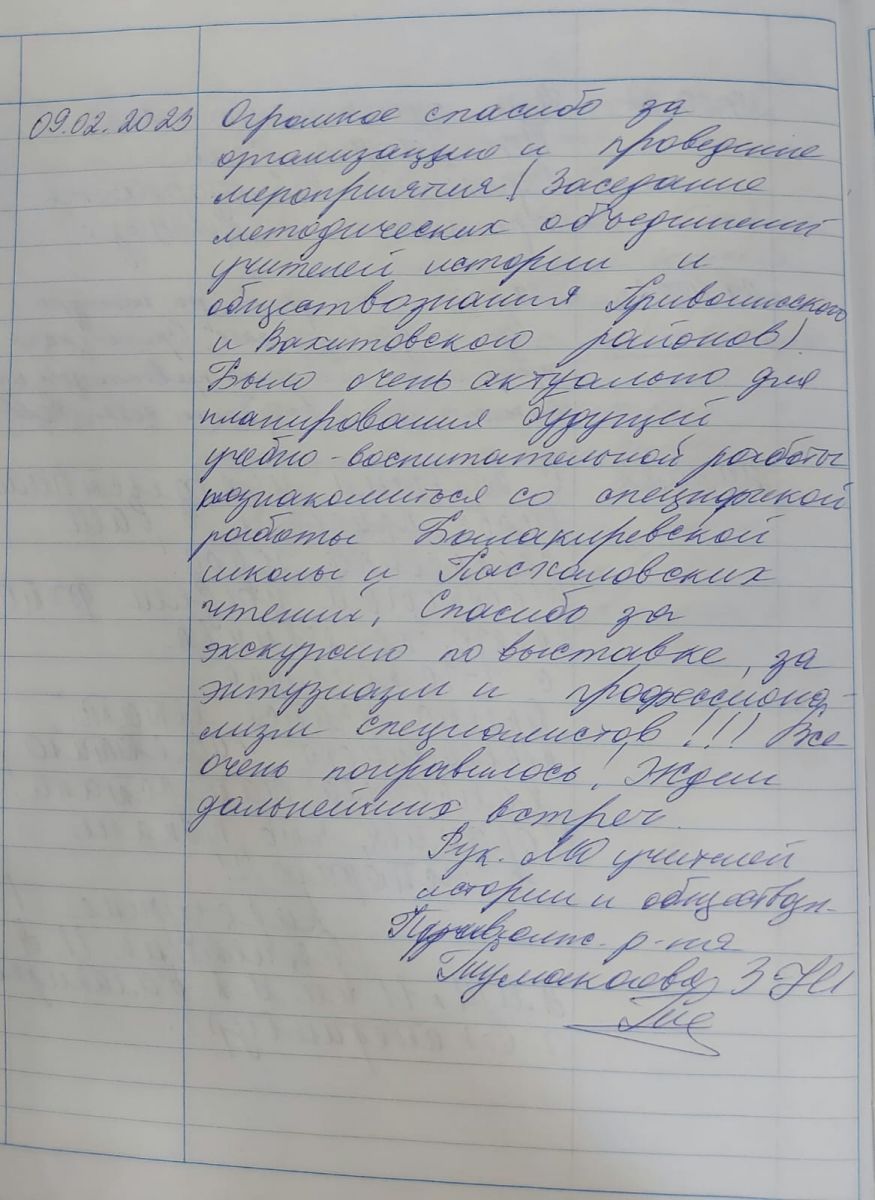 09.02.2023 Огромное спасибо за
организацию и проведение
мероприятия (Заседание
методических объединений
учителей истории и
обществознания Приволжского
и Вахитовского районов)
Было очень актуально для
планирования будущей
учебно-воспитательной работы
познакомиться со спецификой
работы Балакиревской
школы и Пасхаловских
чтений, Спасибо за
экскурсию по выставке, за
энтузиазм и профессиона-
лизм специалистов!!! Все
очень понравилось! Ждем
дальнейших встреч.
Рук. МО учителей
истории и обществозн.
Приволж. р-на